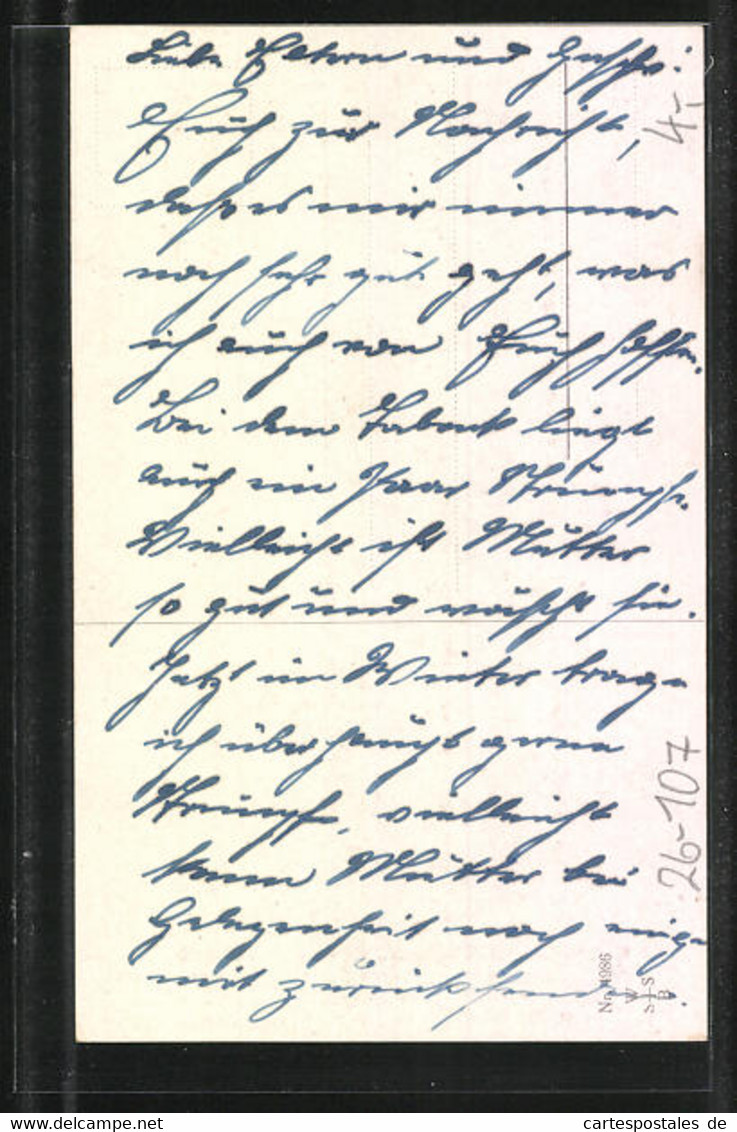 Liebe Eltern und Gesch.!
Euch zur Nachricht,
daß es mir immer
noch sehr gut geht, was
ich auch von Euch hoffe.
Bei dem Tabak liegt
auch ein Paar Strümpfe.
Vielleicht ist Mutter
so gut und wäscht sie.
Jetzt im Winter trage
ich überhaupt gerne
Strümpfe, vielleicht
kann Mutter bei
Gelegenheit noch einige
mit zurück senden.
4,-
26-107
Nr. 4986
W
S+S
B
oldthing.com
cartespostales de